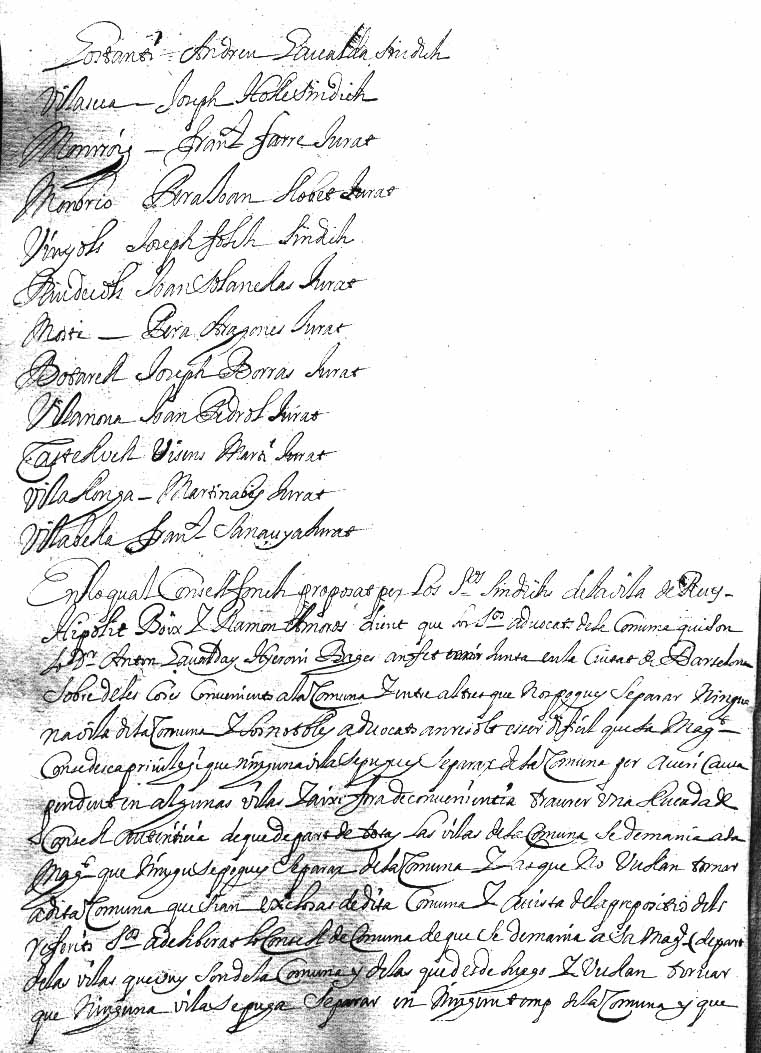 Costanti - Andreu Lavalda sindich
Vilaseca - Joseph Molle sindich
Monrroig - Fran.t Farre Jurat
Monbrio Pera Joan Llobet Jurat
Vinyols Joseph Folch Sindich
Riudecols Joan Solanellas Jurat
Moste - Pera Aragones Jurat
Botarell Joseph Borras Jurat
Vilanova Joan Pedrol Jurat
Castellvell Visens Marti Jurat
Vila llonga - Marti Jurat
Vilabella Fran.t Sanauya Jurat
En lo qual Consell fonch proposat per Los S.rs Sindichs de la vila de Reus
Hipolit Boix y Ramon Amoros dient que los S.rs advocats de la Comuna qui son
lo D.r Anton y Geroni Bages an fet Junta en la Ciutat de Barselona
Sobre de les coses Convenients a la Comuna y entre altres que No se pogues Separar Ninguna
na vila de la Comuna y los nobles advocats an resolt esser dificil que Sa Mag.t
Consedesca privilegi que ninguna vila se pugues Separar de la Comuna per averi Causa
pendent en algunas vilas y aixi fora de convenientia traurer una de
Consell autentica de que de part de totas Las vilas de la Comuna Se demania a sa
Mag.t que Ningu se pogues Separar de la Comuna y las que No Vullan tornar
a dita Comuna que sian exclosas de dita Comuna y a vista de la proposisio dels
referits S.rs a deliberat lo Consell de Comuna de que Se demania a Sa Mag.t de part
de las vilas que vuy son de la Comuna y de las que desde luego y Vullan tornar
que Ninguna vila Se puga Separar en Ningun temp de la Comuna y que